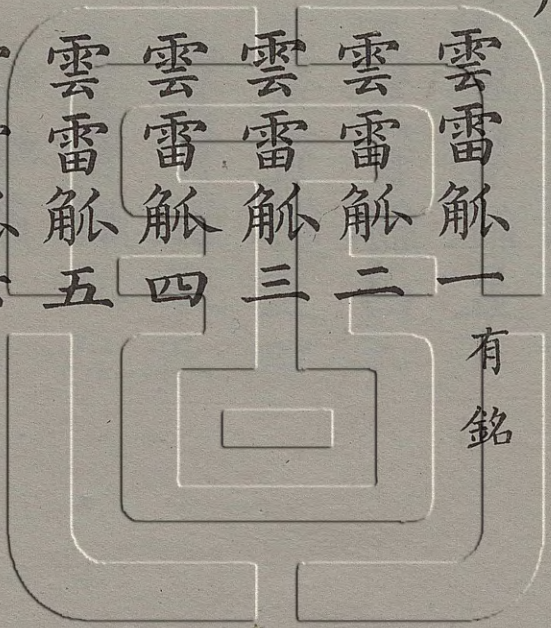 雲雷觚一 有銘
雲雷觚二
雲雷觚三
雲雷觚四
雲雷觚五